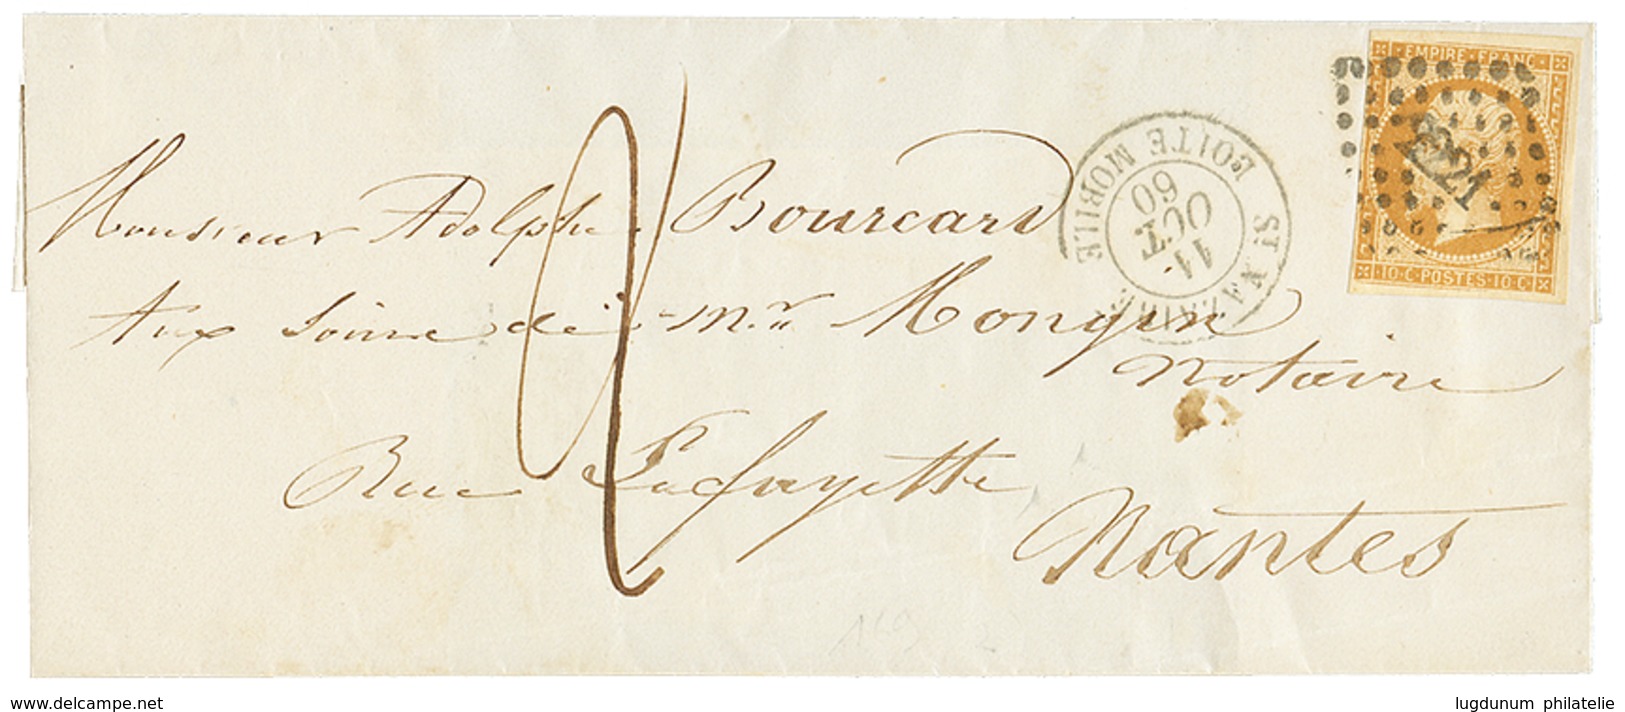 EMPIRE FRANC.
10 C. POSTES 10 C.
ST NAZAIRE
BOITE MOBILE
11
OCT.
60
2
Monsieur Adolphe Bourcart
Aux Soins de Mr. Mongin
Notaire
Rue Lafayette
Nantes
www.delcampe.net
lugdunum philatelie